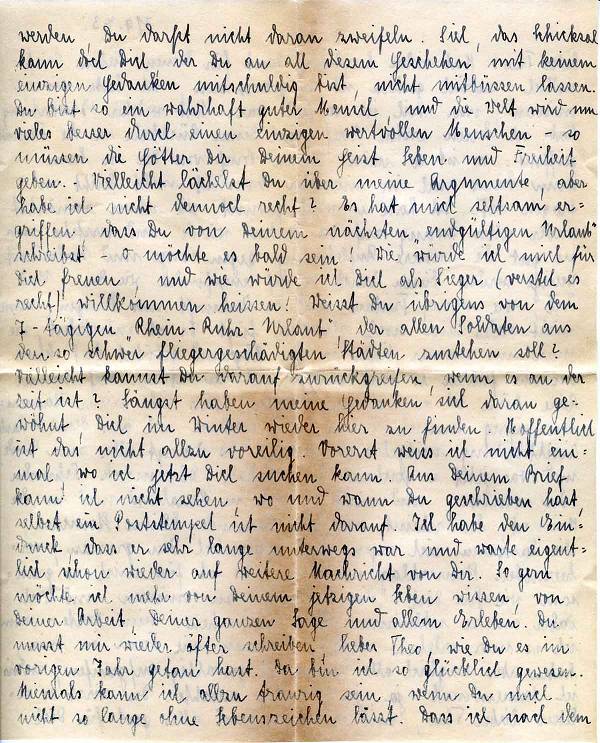 werden, Du darfst nicht daran zweifeln. Sieh, das Schicksal
kann doch Dich der Du an all diesem Geschehen mit keinem
einzigen Gedanken mitschuldig bist, nicht mitbüssen lassen.
Du bist so ein wahrhaft guter Mensch, und die Welt wird um
vieles besser durch einen einzigen wertvollen Menschen - so
müssen die Götter Dir Deinem Geist Leben und Freiheit
geben. - Vielleicht lächelst Du über meine Argumente, aber
habe ich nicht dennoch recht? Es hat mich seltsam er-
griffen, dass Du von Deinem nächsten endgültigen "Urlaub"
schreibst - o möchte es bald sein! Wie würde ich mich für
Dich freuen, und wie würde ich Dich als Sieger (versteh es
recht) willkommen heissen! Weisst Du übrigens von dem
7-tägigen "Rhein-Ruhr-Urlaub", der allen Soldaten aus
den so schwer fliegergeschädigten Städten zustehen soll?
Vielleicht kannst Du darauf zurückgreifen, wenn es an der
Zeit ist? Längst haben meine Gedanken sich daran ge-
wöhnt Dich im Winter wieder hier zu finden. Hoffentlich
ist das nicht allzu voreilig. Vorerst weiss ich nicht ein-
mal, wo ich jetzt Dich suchen kann. Aus Deinem Brief
kann ich nicht sehen, wo und wann Du geschrieben hast,
selbst ein Poststempel ist nicht darauf. Ich habe den Ein-
druck, dass er sehr lange unterwegs war und warte eigent-
lich schon wieder auf weitere Nachricht von Dir. So gern
möchte ich mehr von Deinem jetzigen Leben wissen, von
Deiner Arbeit, Deiner ganzen Lage und allem Erleben. Du
musst mir wieder öfter schreiben, lieber Theo, wie Du es im
vorigen Jahr getan hast. Da bin ich so glücklich gewesen.
Niemals kann ich allzu traurig sein, wenn Du mich
nicht so lange ohne Lebenszeichen lässt. Dass ich nach dem